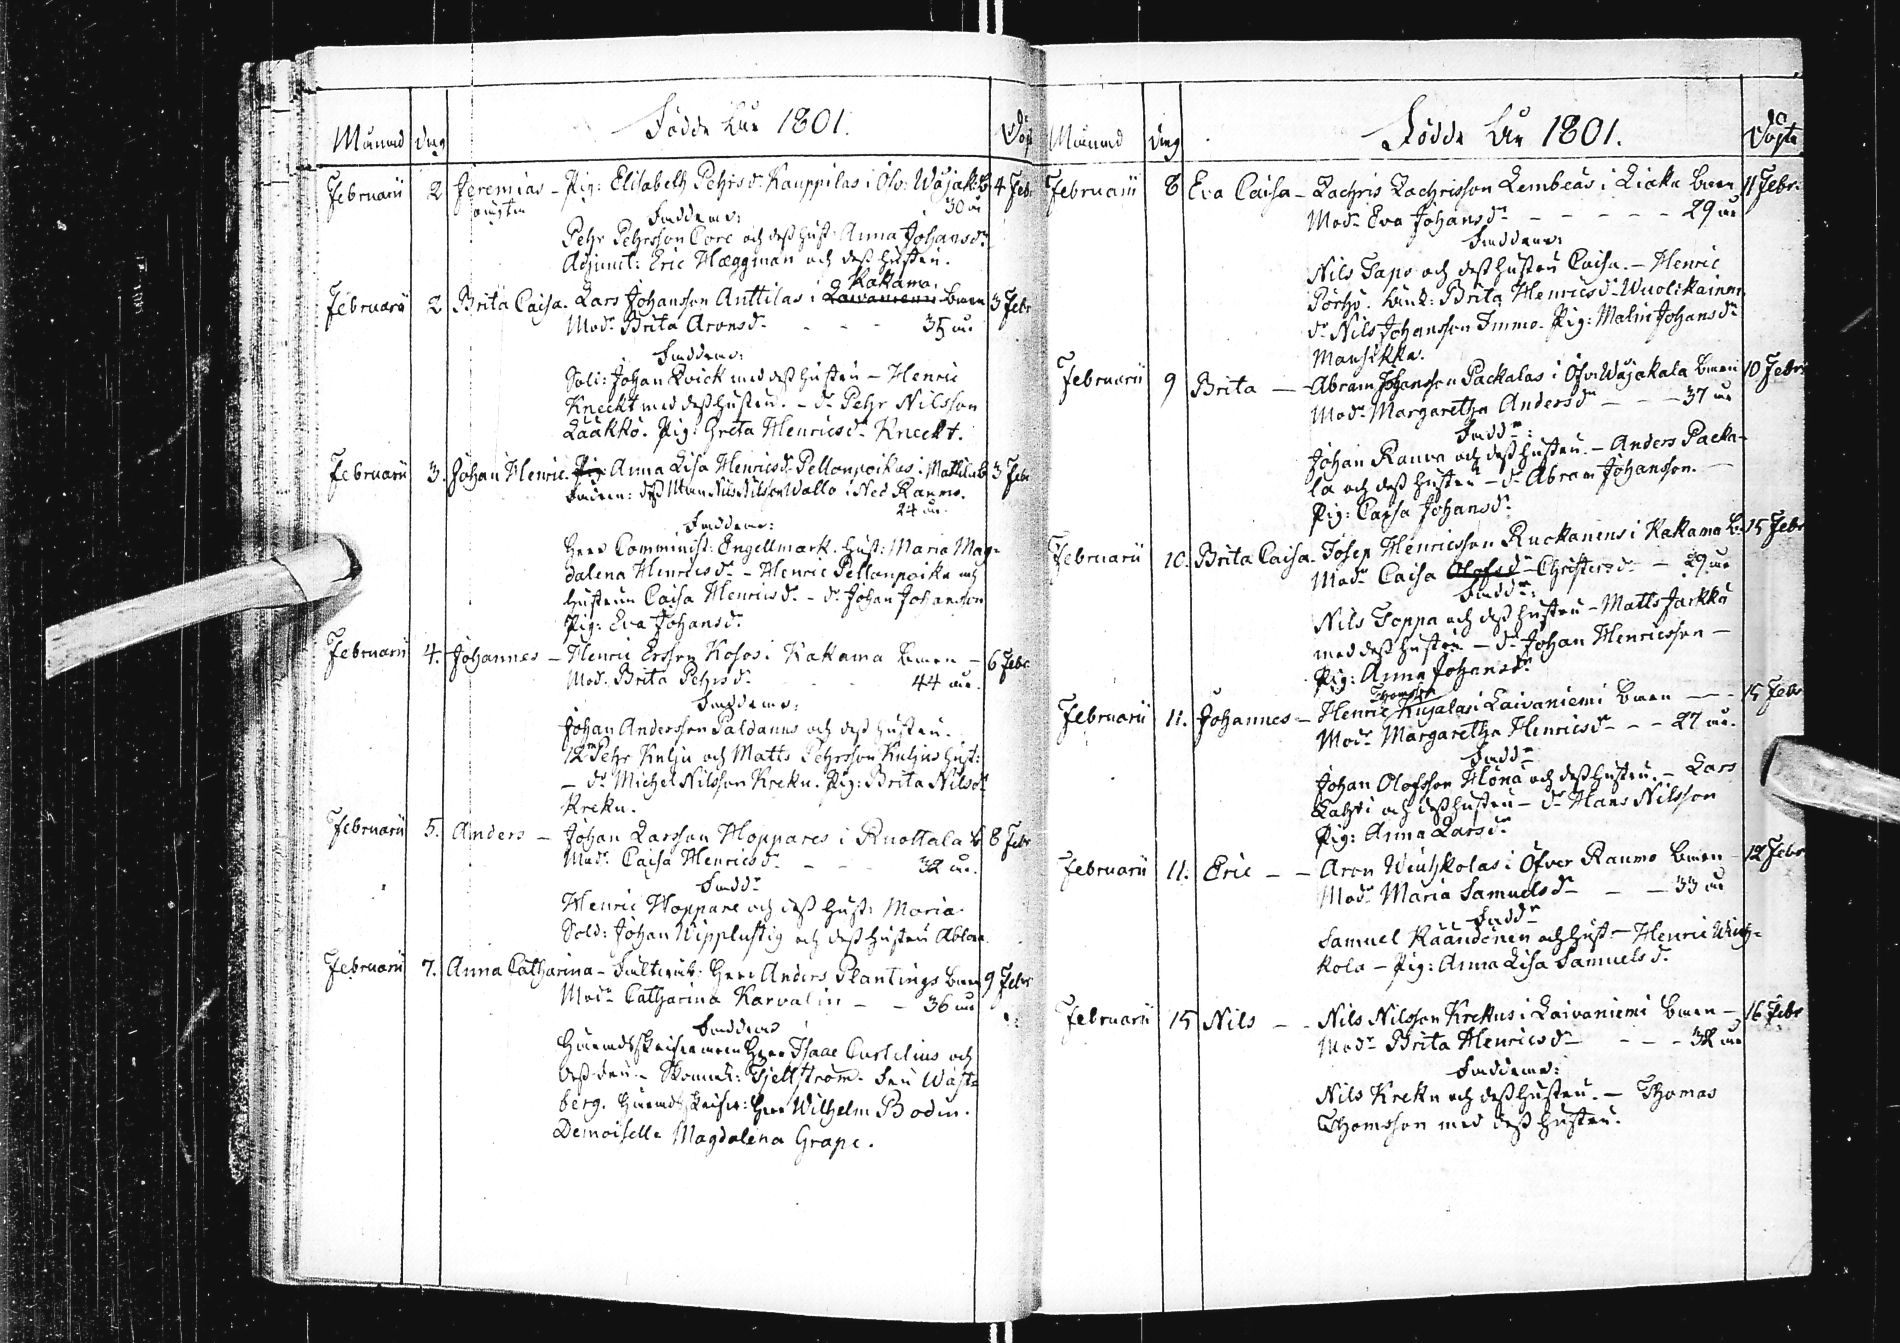 Månad dag Födde Åhr 1801. Döpt
Februarii 2 Jeremias – Pig: Elisabeth Pehrsd:r Kauppilas i Öfv: Wojak: B 4 Febr
oäckta 30 år
Faddrar:
Pehr Pehrsson Core och dess hust: Anna Johansd:r
Adjunct: Eric Hæggman och dess hustru.
Kakama
Februarii 2 Brita Caisa. Lars Johansson Anttilas i Laivaniemi Barn 3 Febr
Mod:r Brita Aronsd:r - - - 35 år.
Faddrar:
Sold: Johan Qvick med dess hustru – Henric
Kneckt med dess hustru. – d:r Pehr Nilsson
Lääkkö. Pig: Greta Henricsd:r Kneckt.
Februarii 3. Johan Henric. Pig: Anna Lisa Henricsd:r Pellonpoikas i Mattila B 3 Febr
Fadren: dess Man Nils Nilsson Wallo i Ned Raumo.
24 år.
Faddrar:
Herr Comminist: Engellmark. Hust: Maria Mag-
dalena Henricsd:r – Henric Pellonpoika och
hustrun Caisa Henricsd:r – d:r Johan Johansson
Pig: Eva Johansd:r
Februarii 4. Johannes – Henric Ersson Kosos i Kakama Barn – 6 Febr
Mod: Brita Pehrsd:r - - 44 år.
Faddrar:
Johan Andersson Paldanus och dess hustru.
Pehr Kulju och Matts Pehrsson Kuljus hust:
– d:r Michel Nilsson Kreku. Pig: Brita Nilsd:r
Kreku.
Februarii 5. Anders – Johan Larsson Hoppares i Ruottala B 8 Febr
Mod: Caisa Henricsd:r - - - 32 år.
Fadd:r
Henric Hoppare och dess hust: Maria.
Sold: Johan Wipplustig och dess hustru Ablona.
Februarii 7. Anna Catharina – Faltwäb: Herr Anders Plantings Barn 9 Febr
Mod:r Catharina Karvalin – – 36 år
Faddrar
Häradsskrifvaren Herr Isaac Curtelius och
dess fru. – Kommis: Fjellström. Fru Wäst-
berg. Häradsskrifv: Herr Wilhelm Bodin.
Demoiselle Magdalena Grape.
Månad dag Födde År 1801. Döpte
Februarii 8 Eva Caisa – Zachris Zachrisson Lembeäs i Liakka Barn 11 Febr.
Mod:r Eva Johansd:r - - - - - 29 år
Faddrar:
Nils Tapo och dess hustru Caisa. – Henric
Pörhö. Änk: Brita Henricsd:r Wuolikainen
d:r Nils Johansson Immo. Pig: Malin Johansd:r
Mansikka.
Februarii 9 Brita – – Abram Johansson Packalas i Öfv: Wojakala Barn 10 Febr:
Mod:r Margaretha Andersd:r – – – 37 år
Fadd:r:
Johan Rauva och dess hustru. – Anders Packa-
la och dess hustru – d:r Abram Johansson. –
Pig: Caisa Johansd:r
Februarii 10. Brita Caisa. Josep Henricsson Ruokanens i Kakama B. 15 Febr
Mod:r Caisa Olofsd:r Christersd:r – 29 år
Fadd:r:
Nils Toppa och dess hustru – Matts Jarkko
med dess hustru – d:r Johan Henricsson –
Pig: Anna Johansd:r
Thomsson
Februarii 11. Johannes – Henric Kujalas i Laivaniemi Barn – – 15 Febr
Mod:r Margaretha Henricsd:r – – 27 år.
Fadd:r
Johan Olofsson Honä och dess hustru. – Lars
Lahti och dess hustru – d:r Hans Nilsson
Pig: Anna Larsd:r
Februarii 11. Eric – – Aron Wiuhkolas i Öfver Raumo Barn – 12 Febr
Mod:r Maria Samuelsd:r – – – 33 år
Fadd:r
Samuel Räändenen och hust – Henric Wiuh-
kola – Pig: Anna Lisa Samuelsd:r
Februarii 15 Nils – – Nils Nilsson Krekus i Laivaniemi Barn – 16 Febr
Mod:r Brita Henricsd:r – – – 32 år
Faddrar:
Nils Kreku och dess hustru. – Thomas
Thomsson med dess hustru.